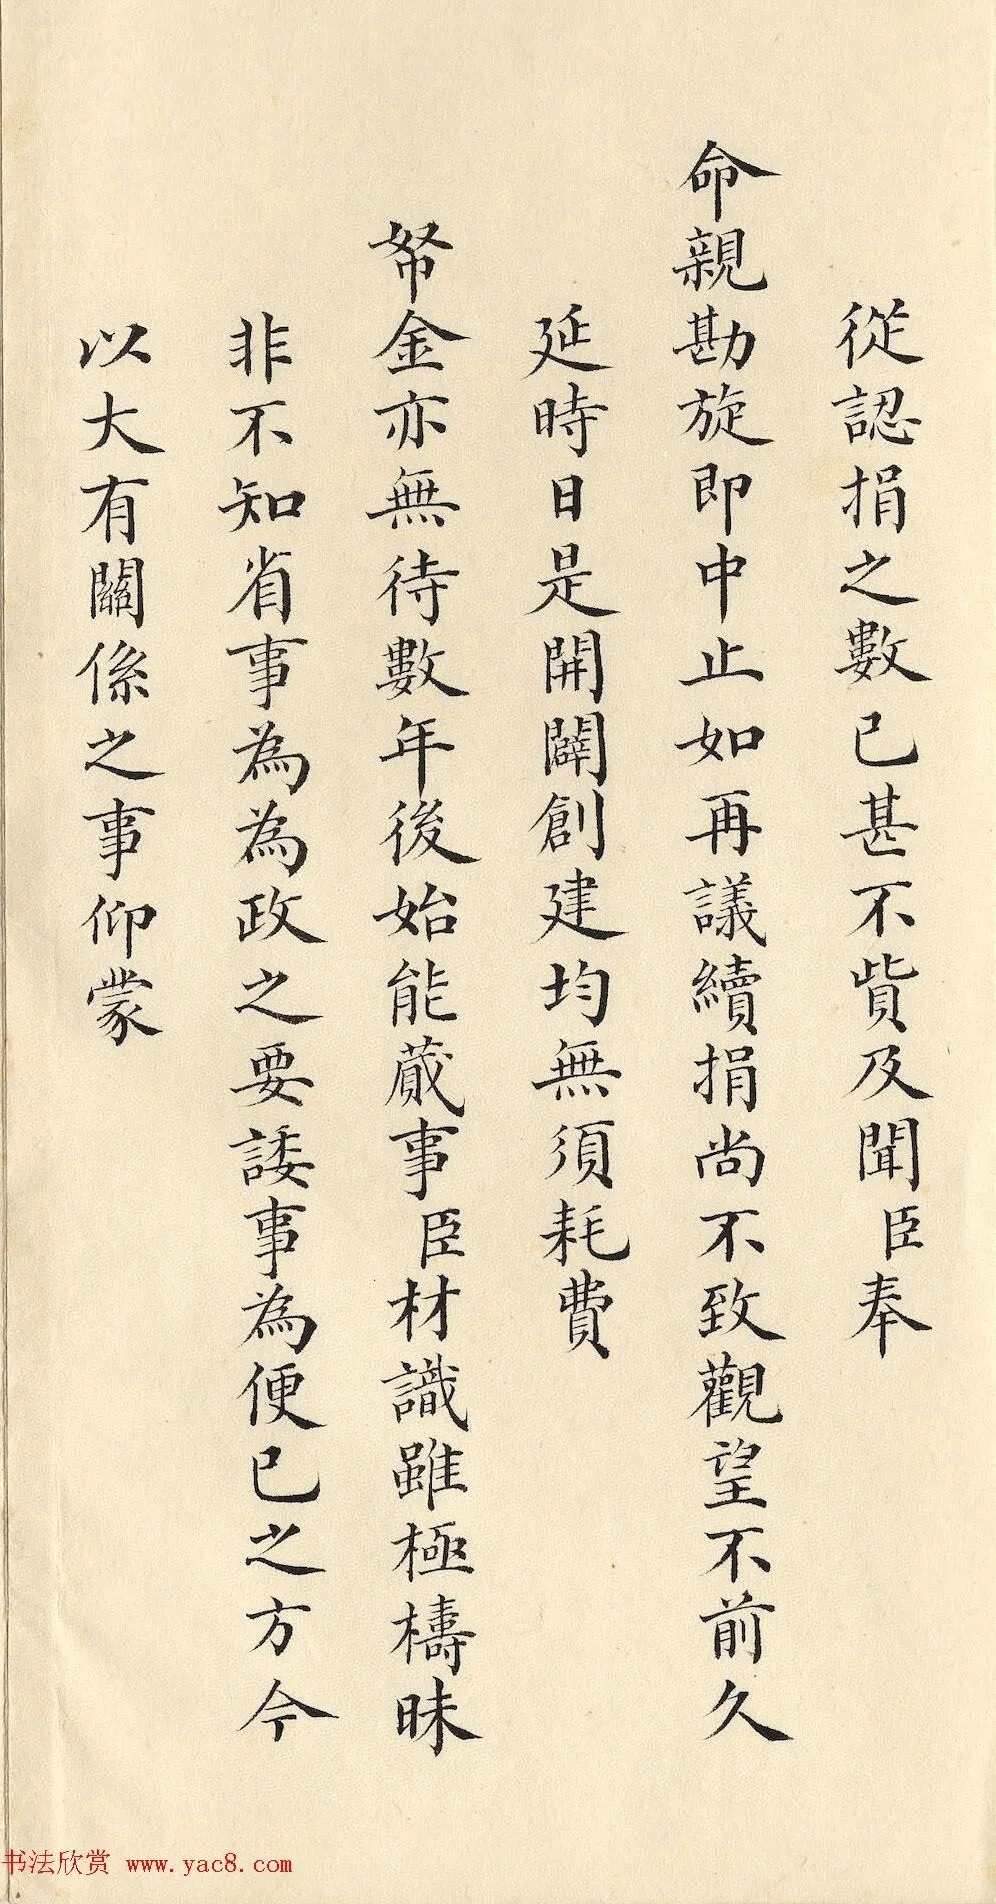 從認捐之數已甚不貲及聞臣奉
命親勘旋即中止如再議續捐尚不致觀望不前久
延時日是開闢創建均無須耗費
帑金亦無待數年後始能蕆事臣材識雖極檮昧
非不知省事為為政之要諉事為便已之方今
以大有關係之事仰蒙
书法欣赏 www.yac8.com